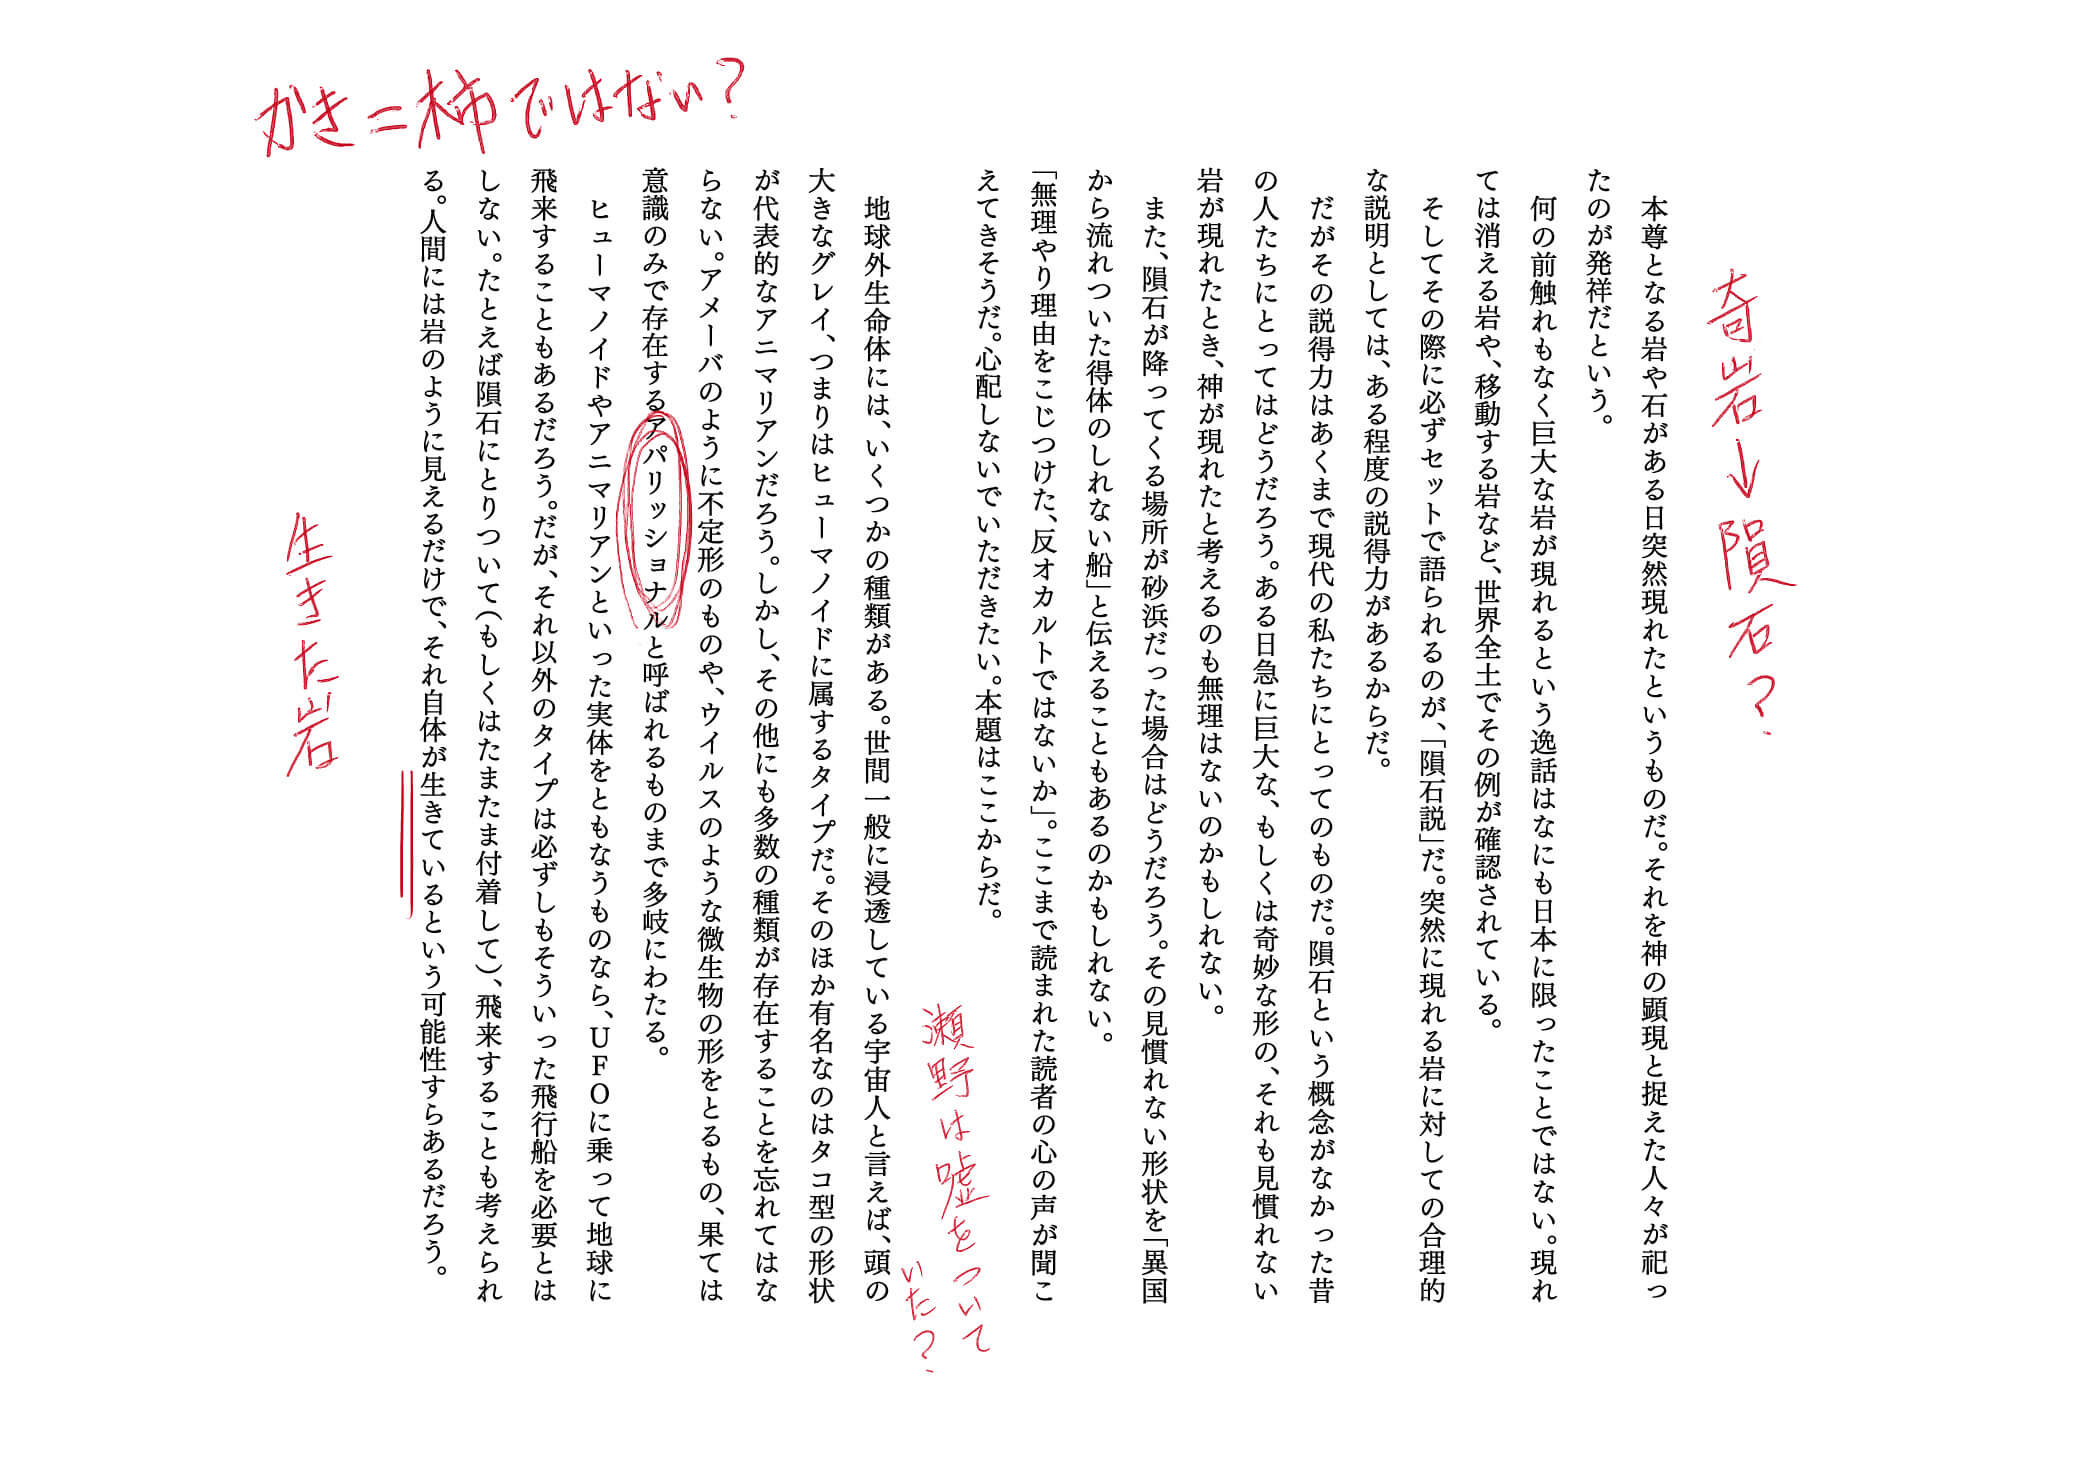 かき=柿ではない?
奇岩→隕石?
本尊となる岩や石がある日突然現れたというものだ。それを神の顕現と捉えた人々が祀っ
たのが発祥だという。
何の前触れもなく巨大な岩が現れるという逸話はなにも日本に限ったことではない。現れ
ては消える岩や、移動する岩など、世界全土でその例が確認されている。
そしてその際に必ずセットで語られるのが、「隕石説」だ。突然に現れる岩に対しての合理的
な説明としては、ある程度の説得力があるからだ。
だがその説得力はあくまで現代の私たちにとってのものだ。隕石という概念がなかった昔
の人たちにとってはどうだろう。ある日急に巨大な、もしくは奇妙な形の、それも見慣れない
岩が現れたとき、神が現れたと考えるのも無理はないのかもしれない。
また、隕石が降ってくる場所が砂浜だった場合はどうだろう。その見慣れない形状を「異国
から流れついた得体のしれない船」と伝えることもあるのかもしれない。
「無理やり理由をこじつけた、反オカルトではないか」。ここまで読まれた読者の心の声が聞こ
えてきそうだ。心配しないでいただきたい。本題はここからだ。
瀬野は嘘をついて
いた?
地球外生命体には、いくつかの種類がある。世間一般に浸透している宇宙人と言えば、頭の
大きなグレイ、つまりはヒューマノイドに属するタイプだ。そのほか有名なのはタコ型の形状
が代表的なアニマリアンだろう。しかし、その他にも多数の種類が存在することを忘れてはな
らない。アメーバのように不定形のものや、ウイルスのような微生物の形をとるもの、果ては
意識のみで存在するアパリッショナルと呼ばれるものまで多岐にわたる。
ヒューマノイドやアニマリアンといった実体をともなうものなら、UFOに乗って地球に
飛来することもあるだろう。だが、それ以外のタイプは必ずしもそういった飛行船を必要とは
しない。たとえば隕石にとりついて(もしくはたまたま付着して)、飛来することも考えられ
る。人間には岩のように見えるだけで、それ自体が生きているという可能性すらあるだろう。
生きた岩